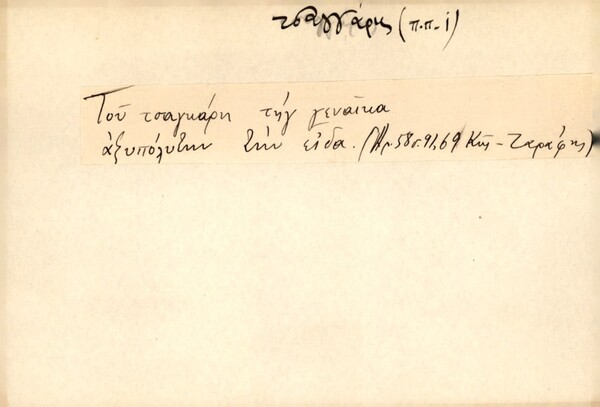 τσαγγάρης (π.π-ι)
Τοῦ τσαγκάρη τὴγ γεναῖκα
ἀξυπόλυτην τὴν εἶδα. (Ἀρ. 58 σ. 91, 69 Κῶς - Ζαράφτης)